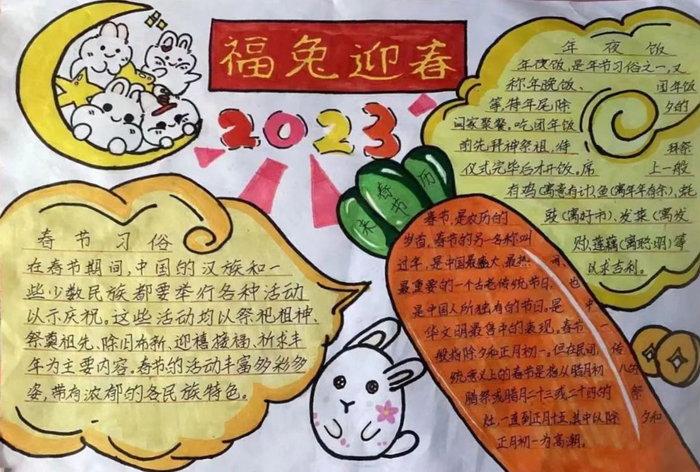 福兔迎春
2023
年夜饭
年夜饭,是年节习俗之一,又
称年晚饭、团年饭
等,特年尾除夕的
阖家聚餐。吃团年饭
前先拜神祭祖,待拜祭
仪式完毕后才开饭。席上一般
有鸡(寓意有计)、鱼(寓年年有余)、蚝
豉(寓好市)、发菜(寓发
财)、莲藕(寓聪明)等
以求吉利。
春节习俗
在春节期间,中国的汉族和一
些少数民族都要举行各种活动
以示庆祝。这些活动均以祭祀祖神、
祭奠祖先、除旧布新、迎禧接福、祈求丰
年为主要内容。春节的活动丰富多彩多
姿,带有浓郁的各民族特色。
春节历来
春节,是农历的
岁首,春节的另一名称叫
过年,是中国最盛大、最热闹、
最重要的一个古老传统节日,也
是中国人所独有的节日。是中
华文明最集中的表现。春节一
般指除夕和正月初一。但在民间,传
统意义上的春节是指从腊月初八的
腊祭或腊月二十三或二十四的祭
灶,一直到正月十五,其中以除夕和
正月初一为高潮。